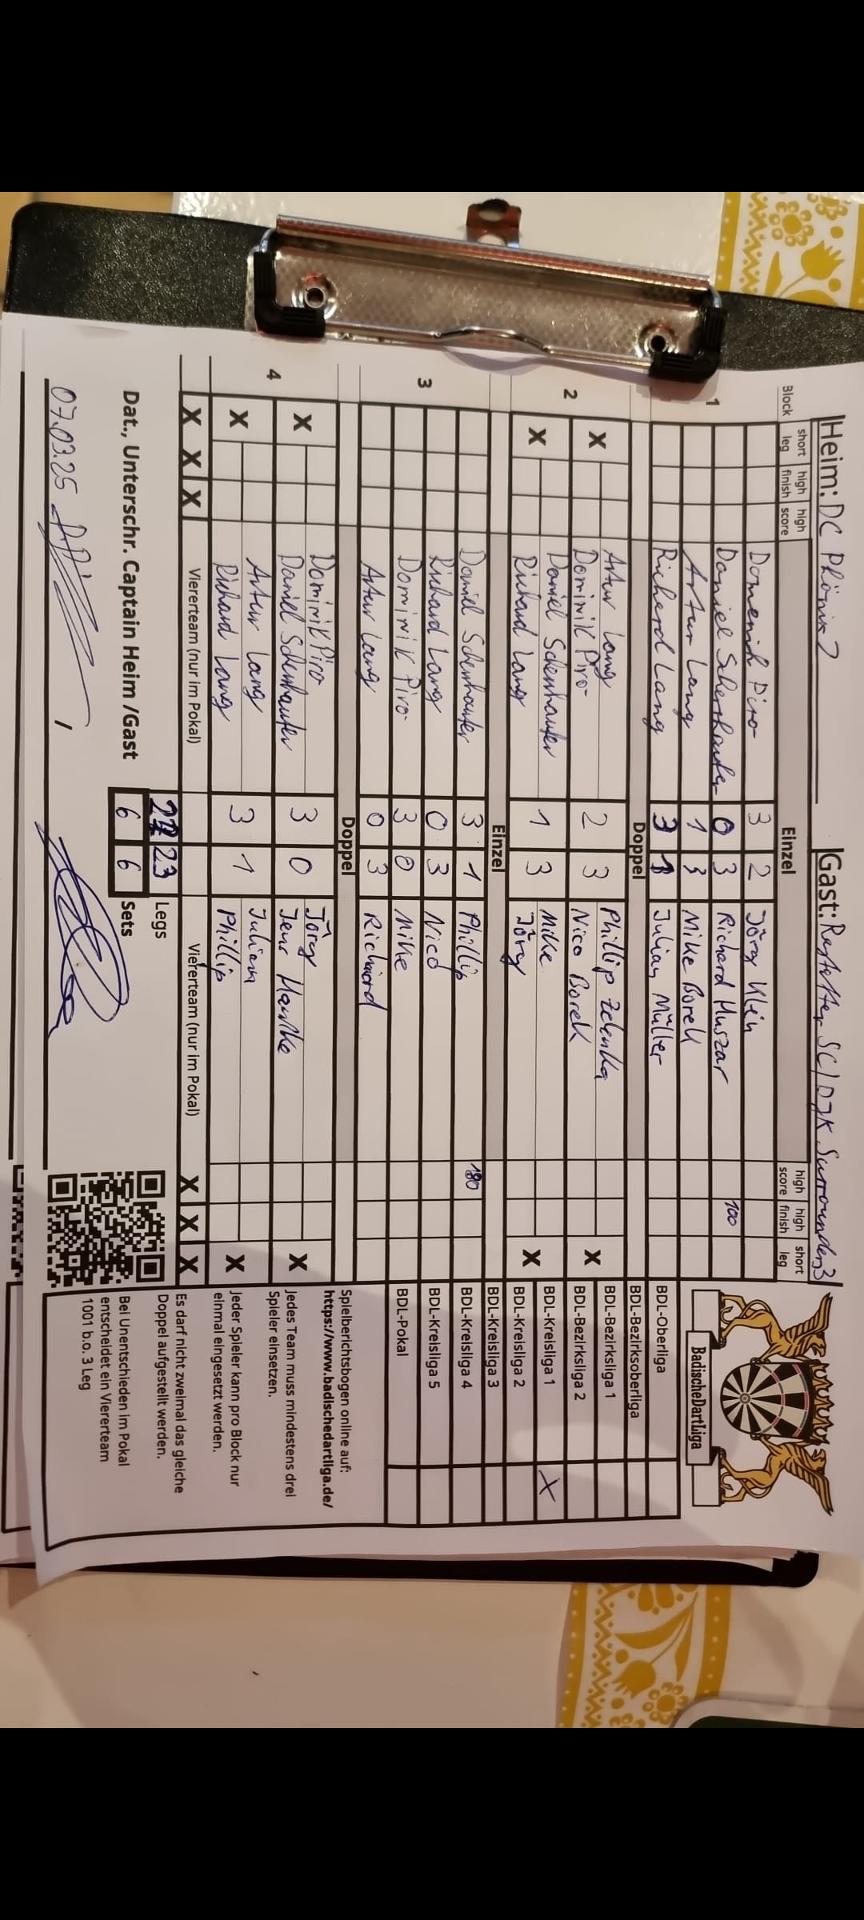 Heim: DC Phönix 2 Gast: Rastatter SC/DJK Surrounders 3
Block short leg high finish high score Einzel high score high finish short leg
1 Domenik Piro 3 2 Jörg Klein
Daniel Schenhauter 0 3 Richard Huszar 100
Artur Lang 1 3 Mike Borek
Richard Lang 3 1 Julian Müller
Doppel
2 X Artur Lang 2 3 Phillip Zelenka X
Dominik Piro Nico Borek
X Daniel Schenhauter 1 3 Mike X
Richard Lang Jörg
Einzel
3 Daniel Schenhauter 3 1 Phillip 180
Richard Lang 0 3 Nico
Dominik Piro 3 0 Mike
Artur Lang 0 3 Richard
Doppel
4 X Dominik Piro 3 0 Jörg X
Daniel Schenhauter Jens
X Artur Lang 3 1 Julian X
Richard Lang Phillip
X X X Viererteam (nur im Pokal) Viererteam (nur im Pokal) X X X
23 Legs
Dat., Unterschr. Captain Heim /Gast 6 6 Sets
07.03.25 /
BadischeDartLiga
BDL-Oberliga
BDL-Bezirksoberliga
BDL-Bezirksliga 1
BDL-Bezirksliga 2
BDL-Kreisliga 1 X
BDL-Kreisliga 2
BDL-Kreisliga 3
BDL-Kreisliga 4
BDL-Kreisliga 5
BDL-Pokal
Spielberichtsbogen online auf:
https://www.badischedartliga.de/
Jedes Team muss mindestens drei
Spieler einsetzen.
Jeder Spieler kann pro Block nur
einmal eingesetzt werden.
Es darf nicht zweimal das gleiche
Doppel aufgestellt werden.
Bei Unentschieden im Pokal
entscheidet ein Viererteam
1001 b.o. 3 Leg